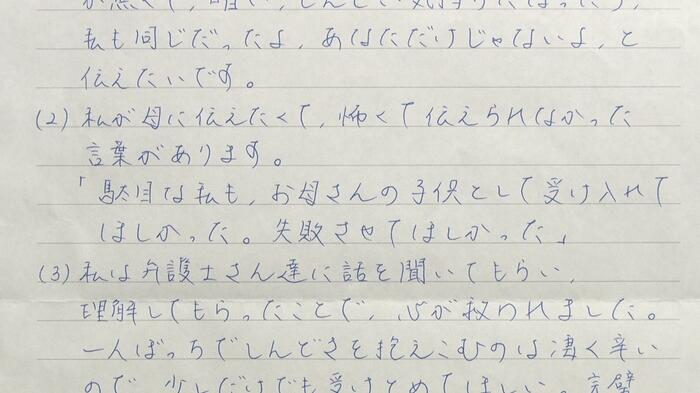 が無くて、暗い、しんどい気持ちだったら、
私も同じだったよ、あなただけじゃないよ、と
伝えたいです。
(2) 私が母に伝えたくて、怖くて伝えられなかった
言葉があります。
「駄目な私も、お母さんの子供として受け入れて
ほしかった。失敗させてほしかった」
(3) 私は弁護士さん達に話を聞いてもらい、
理解してもらったことで、心が救われました。
一人ぼっちでしんどさを抱えこむのは凄く辛い
ので、少しだけでも受けとめてほしい。完璧